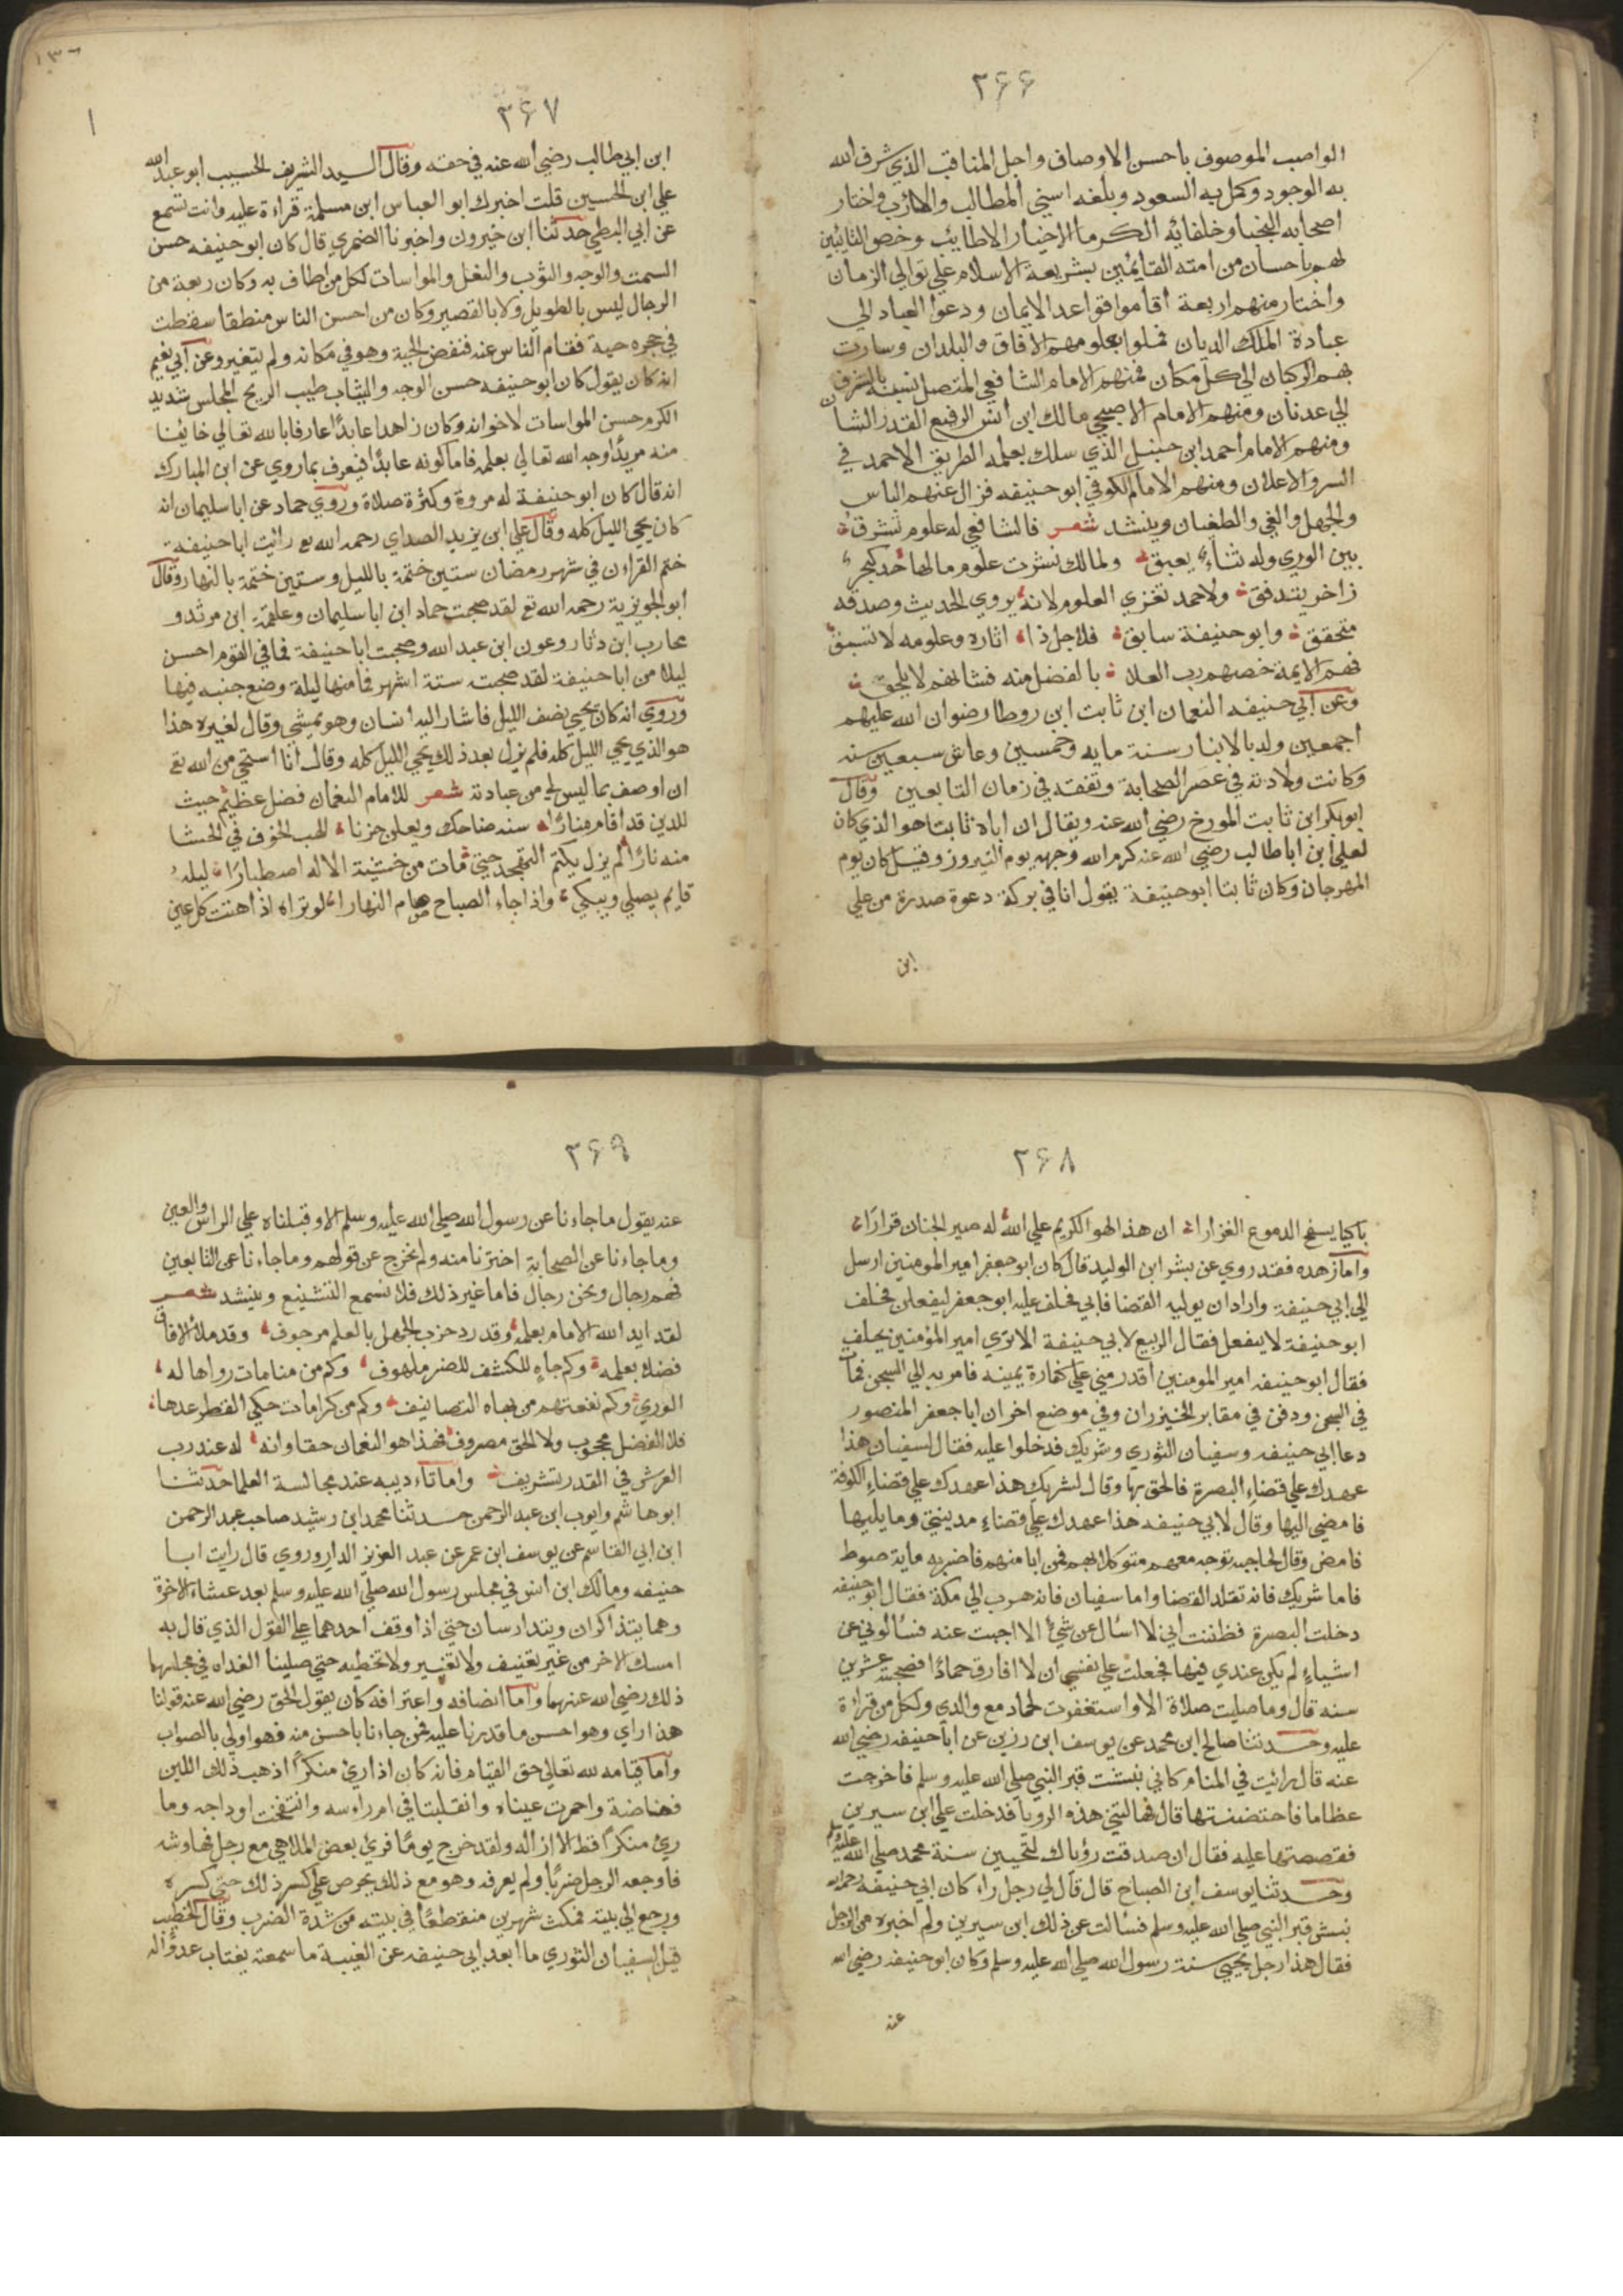 ٣٦٦
الواصب الموصوف باحسن الاوصاف واجل المناقب الذي شرف الله
به الوجود وكمل به السعود وبلغه اسني المطالب والمارب واختار
اصحابه النجبا وخلفائه الكرما الاخيار الاطايب وخص التابيين
لهم باحسان من امته القايمين بشريعة الاسلام علي توالي الزمان
واختار منهم اربعة اقاموا قواعد الايمان ودعوا العباد الي
عبادة الملك الديان فملوا بعلومهم الافاق والبلدان وسارت
بهم الركبان الي كل مكان فمنهم الامام الشافعي المتصل نسبه بالشرف
الي عدنان ومنهم الامام الاصبحي مالك ابن انس الرفيع القدر الشا
ومنهم الامام احمد ابن حنبل الذي سلك بعلمه الطريق الاحمد في
السر والاعلان ومنهم الامام الكوفي ابو حنيفه فزال عنهم الباس
والجهل والغي والطغيان وينشد شعر فالشافعي له علوم تشرق
بين الوري وله ثناء يعبق ولمالك نشرت علوم مالها حد كبحر
زاخر يتدفق ولاحمد تعزي العلوم لانه يروي الحديث وصدقه
متحقق وابو حنيفة سابق فلاجل ذا اثاره وعلومه لا تسبق
فهم الايمة خصهم رب العلا بالفضل منه فشانهم لا يلحق
وعن ابي حنيفه النعمان ابن ثابت ابن روطا رضوان الله عليهم
اجمعين ولد بالانبار سنة مايه وخمسين وعاش سبعين سنه
وكانت ولادته في عصر الصحابة وتفقه في زمان التابعين وقال
ابو بكر ابن ثابت المورخ رضي الله عنه ويقال ان اباه ثابتا هو الذي كان
لعلي ابن ابا طالب رضي الله عنه كرم الله وجهه يوم النيروز وقيل كان يوم
المهرجان وكان ثابتا ابو حنيفة يقول انا في بركة دعوة صدرة من علي
ابن
١٣٦
٣٦٧
ابن ابي طالب رضي الله عنه في حقه وقال السيد الشريف الحسيب ابو عبد الله
علي ابن الحسين قلت اخبرك ابو العباس ابن مسلمة قراءة عليه وانت تسمع
عن ابي البطي حدثنا ابن خيرون واخبرنا الضمري قال كان ابو حنيفه حسن
السمت والوجه والثوب والنعل والمواسات لكل من اطاف به وكان ربعة من
الرجال ليس بالطويل ولا بالقصير وكان من احسن الناس منطقا سقطت
في حجره حية فقام الناس عنه فنفض الحية وهو في مكانه ولم يتغير وعن ابي نعيم
انه كان يقول كان ابو حنيفه حسن الوجه والثياب طيب الريح المجلس شديد
الكرم حسن المواسات لاخوانه وكان زاهدا عابدا عارفا بالله تعالي خايفا
منه مريدا وجه الله تعالي بعلمه فاما كونه عابدا فيعرف بما روي عن ابن المبارك
انه قال كان ابو حنيفة له مروة وكثرة صلاة وروي حماد عن ابا سليمان انه
كان يحيي الليل كله وقال علي ابن يزيد الصداي رحمه الله تع رائيت ابا حنيفة
ختم القراءن في شهر رمضان ستين ختمة بالليل وستين ختمة بالنهار وقال
ابو الجويزية رحمه الله تع لقد صحبت حماد ابن ابا سليمان وعلقمة ابن مرثد و
محارب ابن دثار وعون ابن عبد الله وصحبت ابا حنيفة فما في القوم احسن
ليلا من ابا حنيفة لقد صحبته ستة اشهر فما منها ليلة وضع جنبه فيها
وروي انه كان يحيي نصف الليل فاشار اليه انسان وهو يمشي وقال لغيره هذا
هو الذي يحيي الليل كله فلم يزل بعد ذلك يحيي الليل كله وقال انا استحي من الله تع
ان اوصف بما ليس لي من عبادته شعر للامام النعمان فضل عظيم حيث
للدين قد اقام منارا سنه ضاحك ويعلن حزنا للهب الخوف في الحشا
منه نارا لم يزل يكتم التهجد حتي مات من خشية الاله اصطبارا ليله
قايم يصلي ويبكي واذا جاء الصباح صام النهارا لو تراه اذا هنت كل عين
٣٦٨
باكيا يسفح الدموع الغزارا ان هذا لهو الكريم علي الله له صير الجنان قرارا
واما زهده فقد روي عن بشر ابن الوليد قال كان ابو جعفر امير المومنين ارسل
الي ابي حنيفة واراد ان يوليه القضا فابي فحلف عليه ابو جعفر ليفعلن فحلف
ابو حنيفة لا يفعل فقال الربيع لابي حنيفة الا تري امير المؤمنين يحلف
فقال ابو حنيفه امير المومنين اقدر مني علي كفارة يمينه فامر به الي السجن فمات
في السجن ودفن في مقابر الخيزران وفي موضع اخر ان ابا جعفر المنصور
دعا ابي حنيفه وسفيان الثوري وشريك فدخلوا عليه فقال لسفيان هذا
عهدك علي قضاء البصرة فالحق بها وقال لشريك هذا عهدك علي قضاء الكوفة
فامضي اليها وقال لابي حنيفه هذا عهدك علي قضاء مدينتي وما يليها
فامض وقال لحاجبه توجه معهم متوكلا بهم فمن ابا منهم فاضربه ماية صوط
فاما شريك فانه تقلد القضا واما سفيان فانه هرب الي مكة فقال ابو حنيفه
دخلت البصرة فظننت اني لا اسال عن شيء الا اجبت عنه فسالوني عن
اشياء لم يكن عندي فيها فجعلت علي نفسي ان لا افارق حمادا فصحبته عشرين
سنه قال وما صليت صلاة الا واستغفرت لحماد مع والدي ولكل من قراءة
عليه وحدثنا صالح ابن محمد عن يوسف ابن رزين عن ابا حنيفه رضي الله
عنه قال رائيت في المنام كاني نبشت قبر النبي صلي الله عليه وسلم فاخرجت
عظاما فاحتضنتها قال فهالتني هذه الرويا فدخلت علي ابن سيرين
فقصصتها عليه فقال ان صدقت رؤياك لتحيين سنة محمد صلي الله عليه وسلم
وحدثنا يوسف ابن الصباح قال قال لي رجل راء كان ابي حنيفه رحمه الله
نبش قبر النبي صلي الله عليه وسلم فسالت عن ذلك ابن سيرين ولم اخبره من الرجل
فقال هذا رجل يحيي سنة رسول الله صلي الله عليه وسلم وكان ابو حنيفه رضي الله
عنه
٣٦٩
عنه يقول ما جاءنا عن رسول الله صلي الله عليه وسلم الا وقبلناه علي الراس والعين
وما جاءنا عن الصحابة اخترنا منه ولم نخرج عن قولهم وما جاءنا عن التابعين
فهم رجال ونحن رجال فاما غير ذلك فلا نسمع التشنيع وينشد شعر
لقد ايد الله الامام بعلمه وقد رد حزب الجهل بالعلم مرجوف وقد ملا الافاق
فضلا بعلمه وكم جاء للكشف للضر ملهوف وكم من منامات رواها له
الوري وكم نفعتهم من بهاه التصانيف وكم من كرامات حكي القطر عدها
فلا الفضل محجوب ولا الحق مصروف فهذا هو النعمان حقا وانه له عند رب
العرش في القدر تشريف واما تاءديبه عند مجالسة العلما حدثنا
ابو هاشم وايوب ابن عبد الرحمن حدثنا محمد ابن رشيد صاحب عبد الرحمن
ابن ابي القاسم عن يوسف ابن عمر عن عبد العزيز الداروروي قال رايت ابا
حنيفه ومالك ابن انس في مجلس رسول الله صلي الله عليه وسلم بعد عشاء الاخرة
وهما يتذاكران ويتدارسان حتي اذا وقف احدهما علي القول الذي قال به
امسك الاخر من غير تعنيف ولا تغيير ولا تخطيه حتي صلينا الغداه في مجلسهما
ذلك رضي الله عنهما واما انصافه واعترافه كان يقول الحق رضي الله عنه قولنا
هذا راي وهو احسن ما قدرنا عليه فمن جاءنا باحسن منه فهو اولي بالصواب
واما قيامه لله تعالي حق القيام فانه كان اذا ري منكرا اذهب ذلك اللين
واحمرت عيناه وانقلبتا في ام راءسه وانتفخت اوداجه وما
ري منكرا قط الا ازاله ولقد خرج يوما فري بعض الملاهي مع رجل فهاوشه
فاوجعه الرجل ضربا ولم يعرفه وهو مع ذلك يحرص علي كسر ذلك حتي كسره
ورجع الي بيته فمكث شهرين منقطعا في بيته من شدة الضرب وقال الخطيب
قيل لسفيان الثوري ما ابعد ابي حنيفه عن الغيبة ما سمعته يغتاب عدوا له